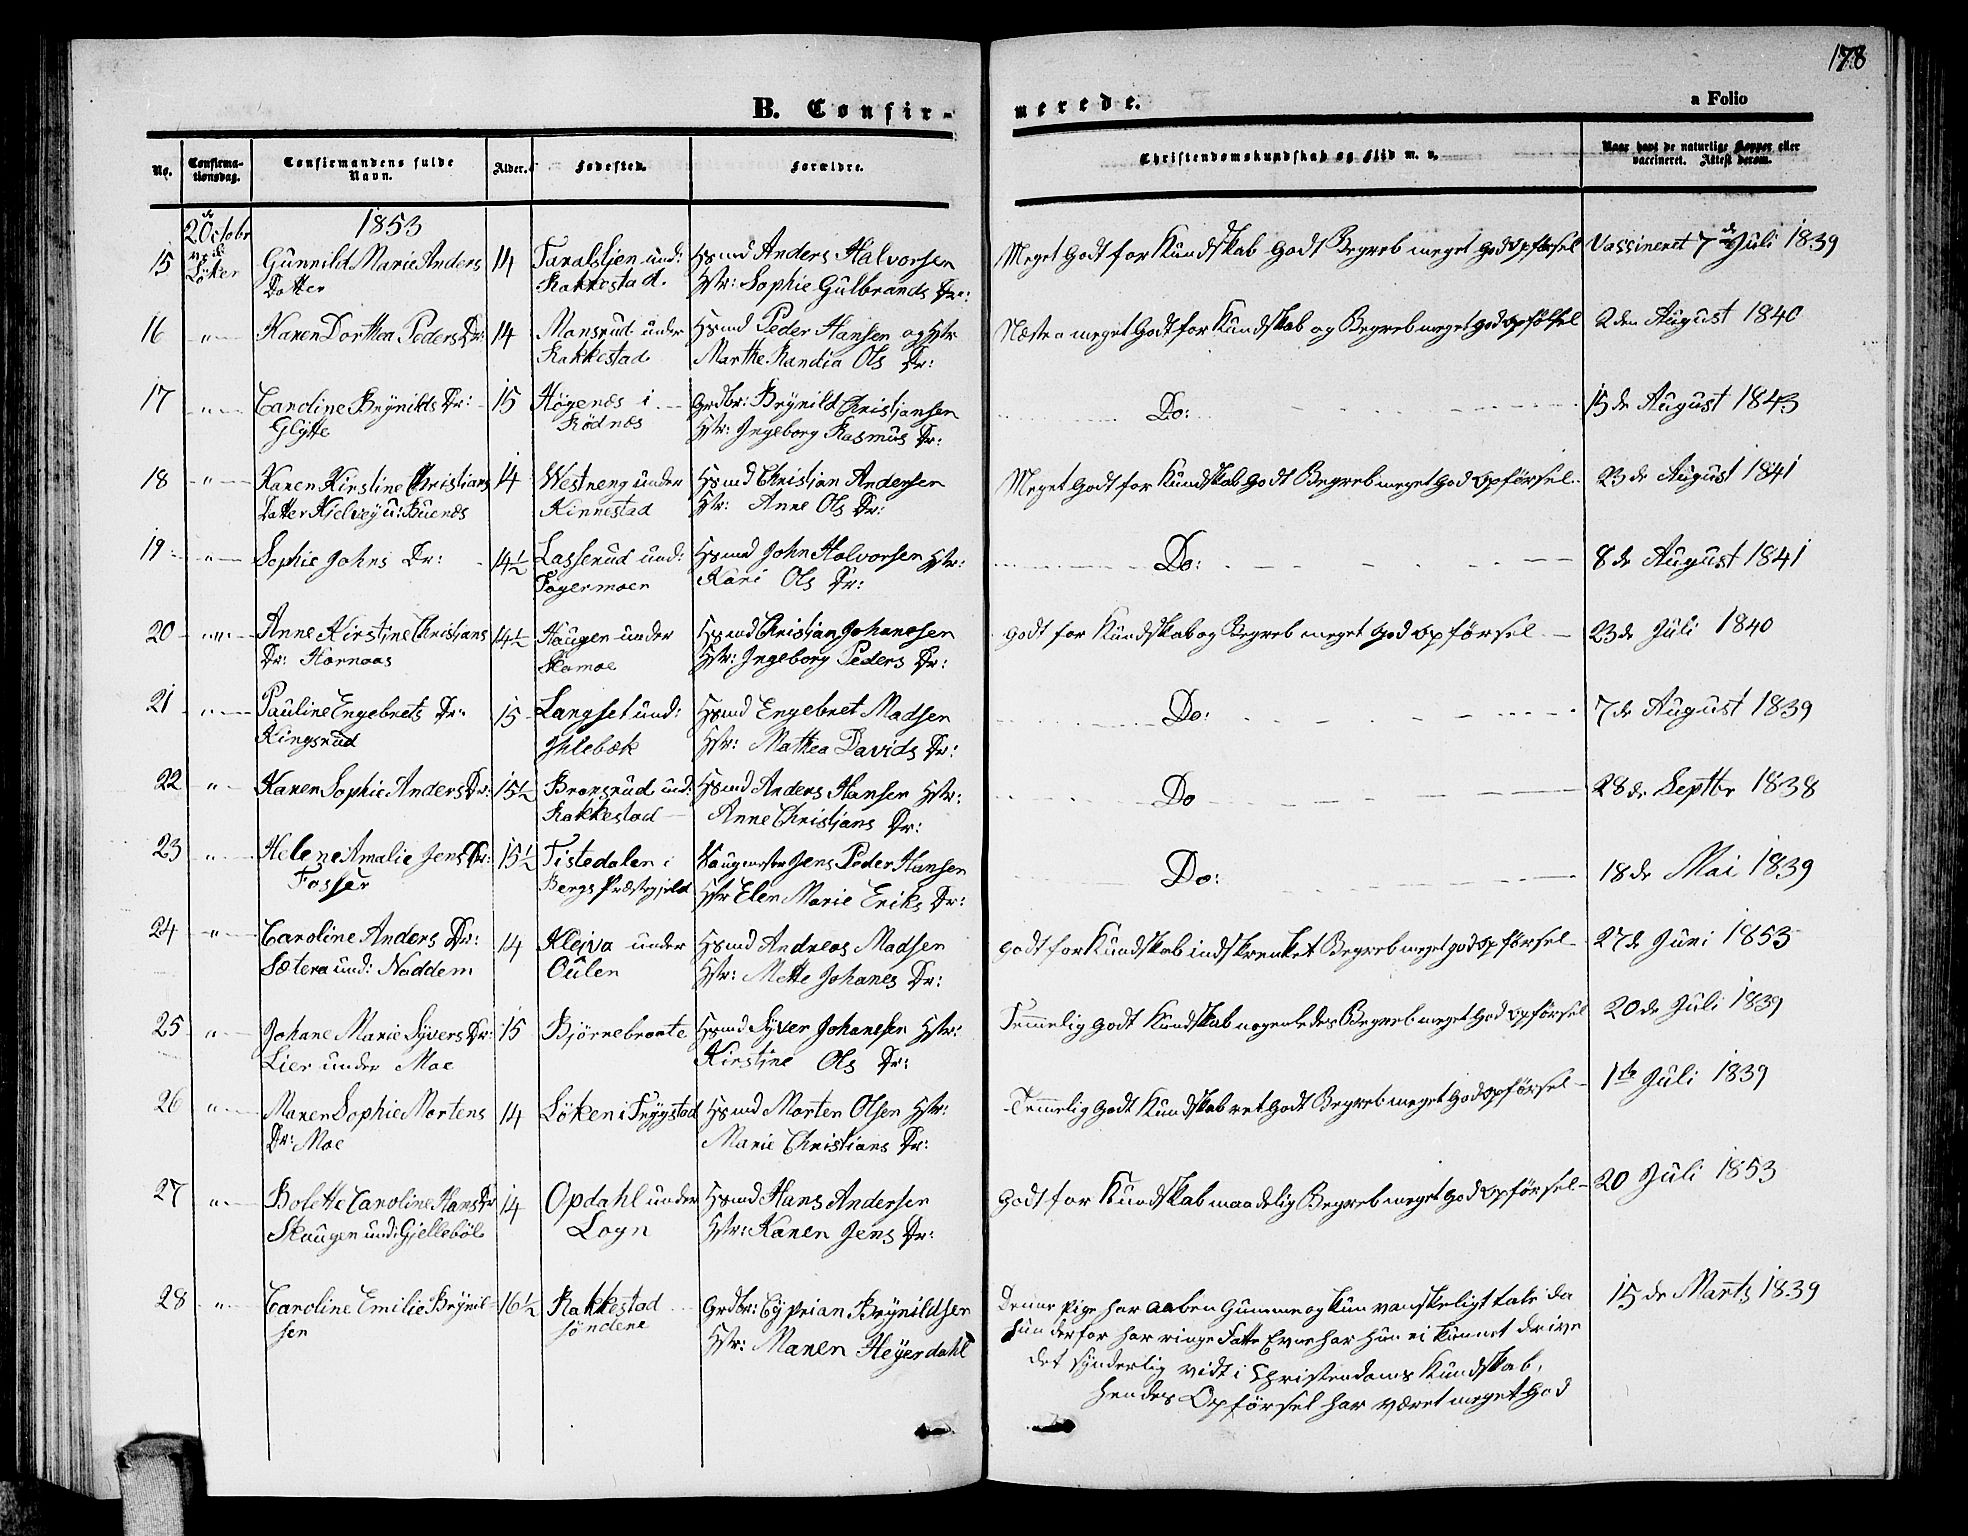 178
B. Confirmerede.
a Folio
No.
Confirma-
tionsdag.
Confirmandens fulde
Navn.
Alder.
Fødested.
Forældre.
Christendomskundskab og Flid m. v.
Naar havt de naturlige Kopper eller
vaccineret. Attest derom.
2de Octobr 1853
15 Løker Gunnild Marie Anders 14 und: Hsmd Anders Halvorsen Meget Godt for Kundskab Godt Begreb meget god Opførsel Vassineret 7de Juli 1839
Datter Rakkestad. Hstr: Sophie Gulbrands Dr:
16 " Karen Dorthea Peders Dr: 14 Mansrud under Hsmd Peder Hansen og Hstr Næsten meget Godt for Kundskab og Begreb meget god Opførsel 2den August 1840
Rakkestad Marthe Randia Ols Dr:
17 " Caroline Brynilds Dr: 15 Høgenæs i Grdbr: Brynild Christjansen Do: 15de August 1843
Glÿtte Rødnæs Hstr: Ingeborg Rasmus Dr:
18 " Karen Kirstine Christians 14 Westneng under Hsmd Christjan Andersen Meget Godt for Kundskab Godt Begreb meget God Opførsel 23de August 1841
Datter Kielvey u: Buenæs Kinnestad Hstr: Anne Ols Dr:
19 " Sophie Johns Dr: 14½ Lasserud und: Hsmd John Halvorsen Hstr: Do: 8de August 1841
Fogermoen Kari Ols Dr:
20 " Anne Kirstine Christjans 14½ Haugen under Hsmd Christjan Johanesen Godt for Kundskab og Begreb meget God Opførsel 23de Juli 1840
Dr: Hornaas Skamoe Hstr: Ingeborg Peders Dr:
21 " Pauline Engebrets Dr: 15 Langset und: Hsmd Engebret Madsen Do: 7de August 1839
Kingsrud Ihlebæk Hstr: Mathea Davids Dr:
22 " Karen Sophie Anders Dr: 15½ Bransrud und: Hsmd Anders Hansen Hstr: Do 28de Septbr 1838
Rakkestad Anne Christjans Dr:
23 " Helene Amalie Jens Dr: 15½ Tistedalen i Jens Peder Hansen Do: 18de Mai 1839
Fosser Bergs Præstegjeld Hstr Elen Marie Eriks Dr:
24 " Caroline Anders Dr: 14 Kleiva under Hsmd Andreas Madsen Godt for Kundskab indskrenket Begreb meget god Opførsel 27de Juni 1853
Sætera und: Noddem Oulen Hstr: Mette Johanes Dr:
25 " Johane Marie Syvers Dr: 15 Bjørnebraate Hsmd Syver Johanesen Hstr: Temmelig Godt Kundskab nogenledes Begreb meget God Opførsel 20de Juli 1839
Lier under Moe Kirstine Ols Dr:
26 " Maren Sophie Mortens 14 Løken i Trygstad Hsmd Morten Olsen Hstr: Temmelig Godt Kundskab ret Godt Begreb meget God Opførsel 1te Juli 1839
Dr: Moe Marie Christians Dr:
27 " Bolette Caroline Hans Dr 14 Opdahl under Hsmd Hans Andersen Godt for Kundskab maadelig Begreb meget god Opførsel 20 Juli 1853
Skaugen und: Gjellebøl Logn Hstr: Karen Jens Dr:
28 " Caroline Emilie Brynil- 16½ Rakkestad Grdbr: Cyprian Brynildsen Denne Pige har aaben Gumme og kun vanskeligt tale da 15de Marts 1839
sen søndene Hstr: Maren Heyerdahl hun derfor har ringe Fatte Evne har hun ei kunnet drive
det synderlig vidt i Christendoms Kundskab,
hendes Opførsel har været meget God